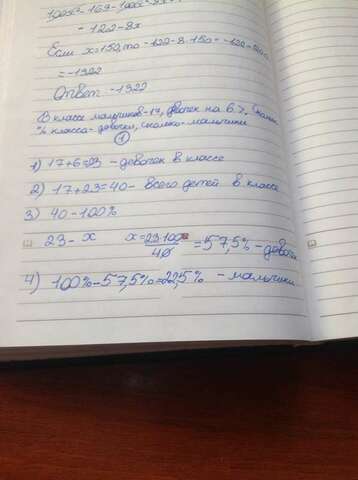 - 122-8x
Если x=150, то -122-8·150=-122-1200=
=-1322
Ответ -1322
В классе мальчиков-17, девочек на 6 >. Сколько
% класса-девочки, сколько-мальчики
1
1) 17+6=23 - девочек в классе
2) 17+23=40- всего детей в классе
3) 40-100%
23- x x=23·100/40=57,5%-девочек
4) 100%-57,5%=22,5% - мальчики